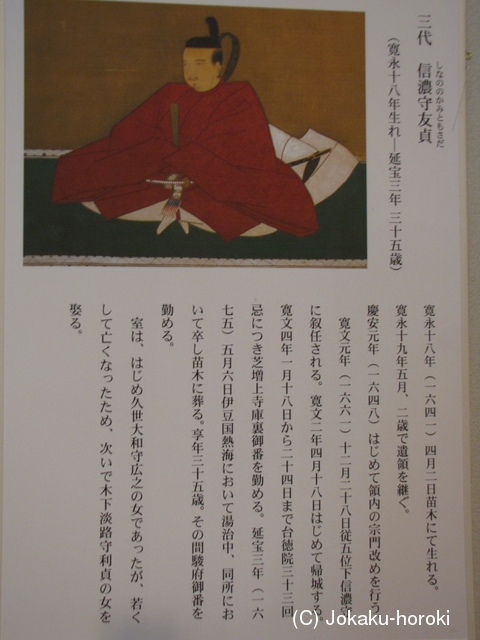 三代　信濃守友貞
しなののかみともさだ
（寛永十八年生れ―延宝三年 三十五歳）
寛永十八年（一六四一）四月二日苗木にて生れる。
寛永十九年五月、二歳で遺領を継ぐ。
慶安元年（一六四八）はじめて領内の宗門改めを行う
寛文元年（一六六一）十二月二十八日従五位下信濃守
に叙任される。寛文二年四月十八日はじめて帰城する
寛文四年一月十八日から二十四日まで台徳院三十三回
忌につき芝増上寺庫裏御番を勤める。延宝三年（一六
七五）五月六日伊豆国熱海において湯治中、同所にお
いて卒し苗木に葬る。享年三十五歳。その間駿府御番を
勤める。
室は、はじめ久世大和守広之の女であったが、若く
して亡くなったため、次いで木下淡路守利貞の女を
娶る。
(C) Jokaku-horoki